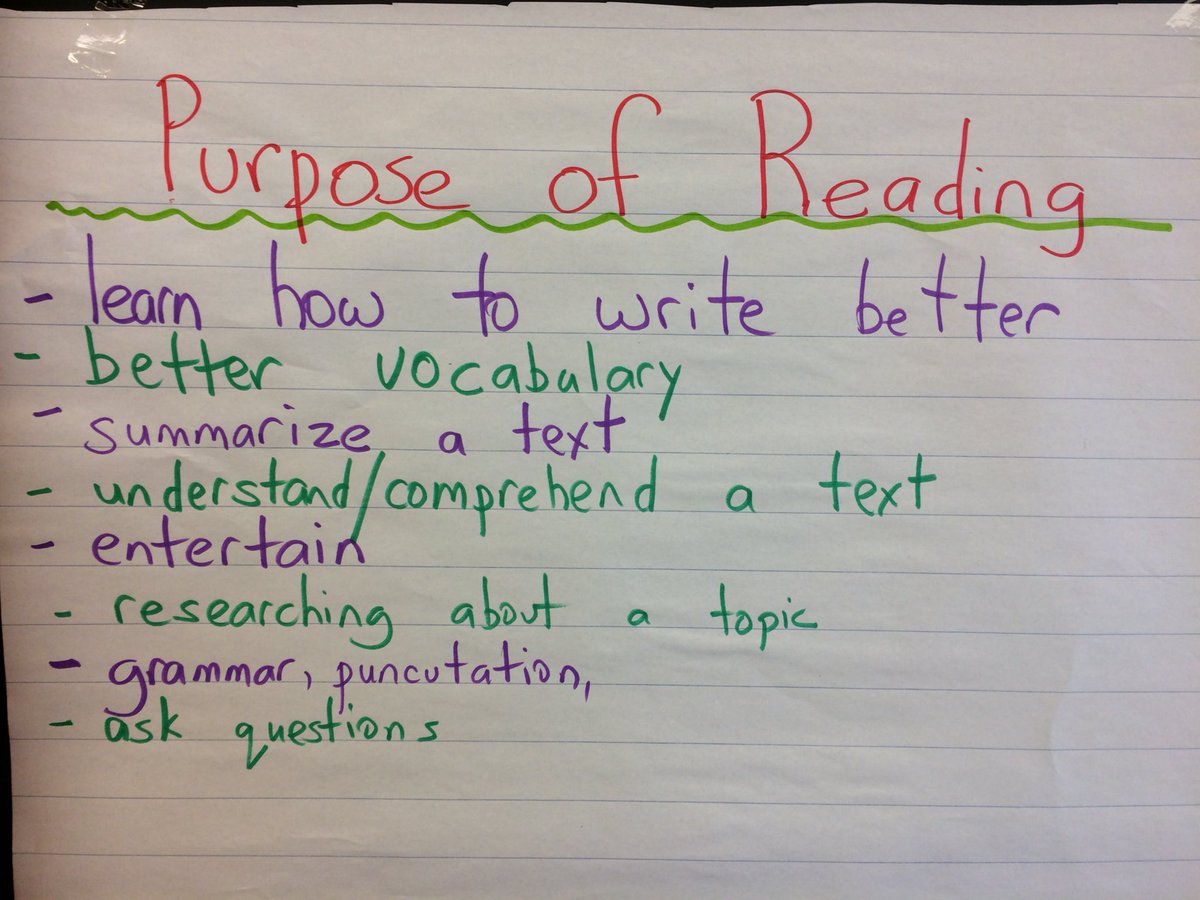 Purpose of Reading
- learn how to write better
- better vocabulary
- summarize a text
- understand/comprehend a text
- entertain
- researching about a topic
- grammar, puncutation,
- ask questions